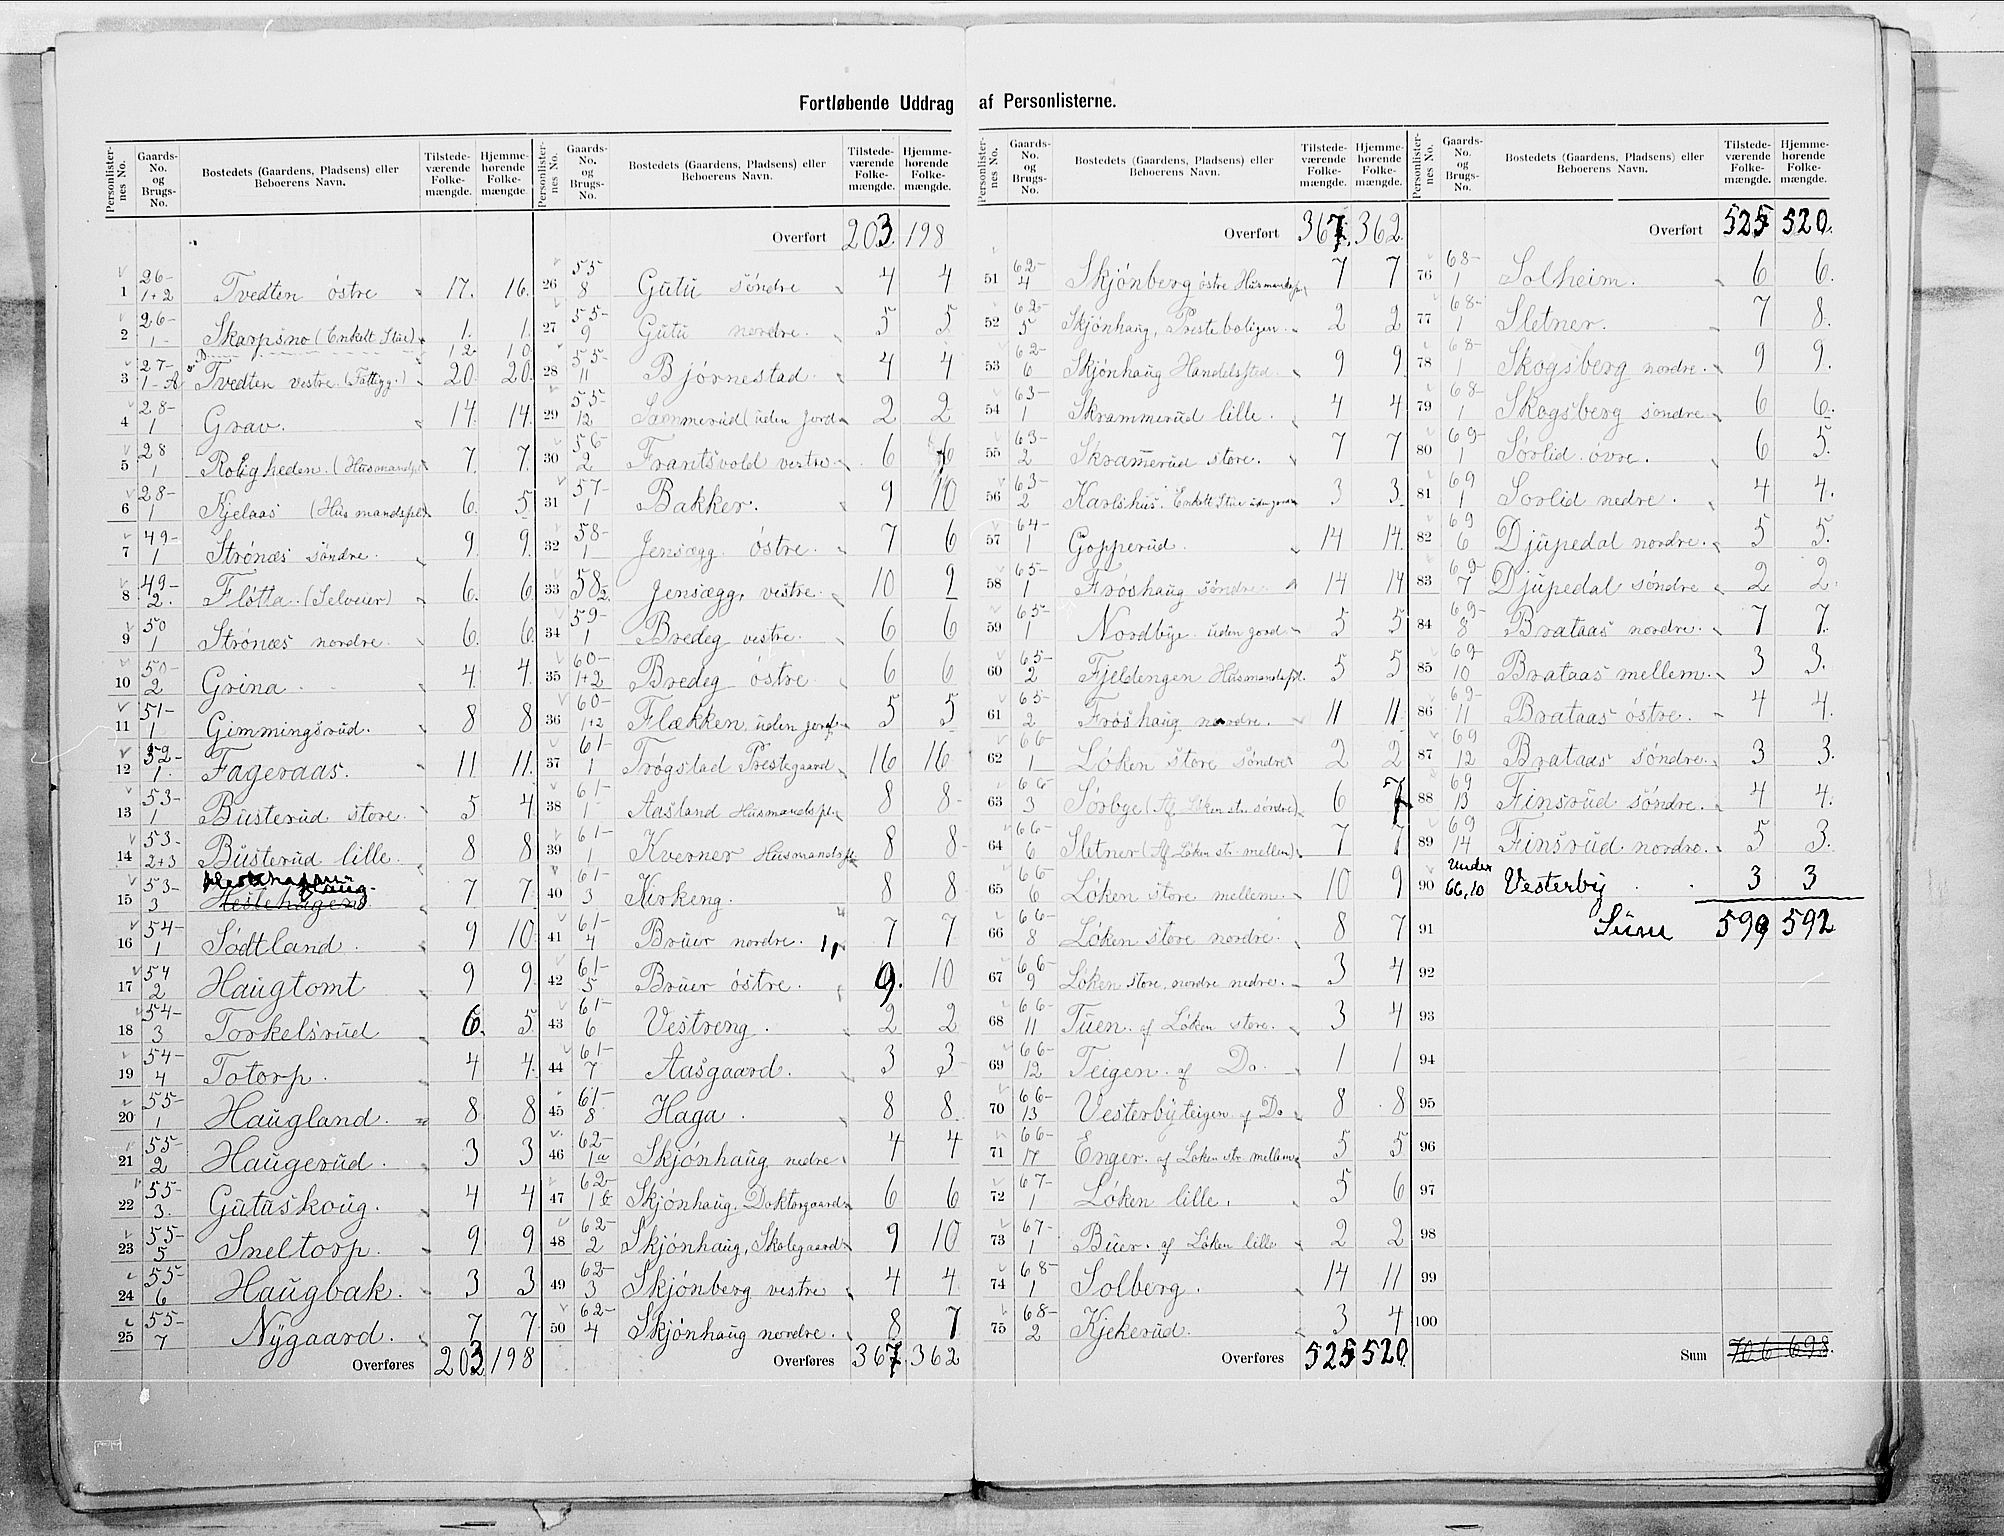 Fortløbende Uddrag af Personlisterne.
Personlister-nes No. | Gaards-No. og Brugs-No. | Bostedets (Gaardens, Pladsens) eller Beboerens Navn. | Tilstede-værende Folke-mængde. | Hjemme-hørende Folke-mængde.
1 26-1+2 Tvedten östre 17. 16.
2 26-1- Skarpsno (Enkelt Stue) 1. 1.
12 10
3 27-1-A Tvedten vestre (Fattigg.) 20. 20.
4 28-1 Grav. 14 14.
5 28 1 Roligheden. (Husmandspl. 7. 7.
6 28-1 Kjelaas (Husmandspl. 6. 5
7 49-1 Strönæs söndre. 9. 9.
8 49-2. Flötta. (Selveier) 6. 6
9 50 1 Strönæs nordre. 6. 6.
10 50-2 Grina. 4. 4
11 51-1 Gimmingsrud. 8 8
12 52-1. Fageraas. 11. 11.
13 53-1 Busterud store. 5 4
14 53-2+3 Busterud lille. 8 8
15 53-3 Hestehagen 7 7
16 54-1 Södtland. 9 10
17 54 2 Haugtomt 9 9.
18 54-3 Torkelsrud 6. 5
19 54-4 Totorp. 4 4.
20 55-1 Haugland. 8 8
21 55-2 Haugerud. 3 3
22 55-3. Gutuskoug. 4 4
23 55-5 Sneltorp. 9 9
24 55-6 Haugbak. 3 3
25 55-7 Nygaard. 7 7
Overføres 203 198
Personlister-nes No. | Gaards-No. og Brugs-No. | Bostedets (Gaardens, Pladsens) eller Beboerens Navn. | Tilstede-værende Folke-mængde. | Hjemme-hørende Folke-mængde.
Overført 203 198
26 55 8 Gutu söndre 4 4
27 55-9 Gutu nordre. 5 5
28 55-11 Björnestad. 4 4
29 55-12 Sæmmerud (uden jord 2 2
30 56-2 Frantsvold vestre. 6 6
31 57-1 Bakker. 9 10
32 58-1 Jensægg. östre. 7 6
33 58 2. Jensægg, vestre. 10 9
34 59-1 Bredeg vestre. 6 6
35 60-1+2 Bredeg östre. 6 6
36 60-1+2 Flækken, uden jord. 5 5
37 61-1 Trøgstad Prestegaard 16 16
38 61-1- Aasland Husmandspl. 8 8-
39 61-1 Kverner Husmandspl. 8 8-
40 61-3 Kirkeng. 8 8
41 61-4 Bruer nordre. 7 7
11
42 61-5 Bruer östre. 9. 10
43 61-6 Vestreng. 2 2
44 61-7 Aasgaard. 3 3
45 61-8 Haga. 8 8.
46 62-1a Skjönhaug nedre 4 4
47 62-1b Skjönhaug. Doktorgaard 6 6
48 62-2 Skjönhaug, Skolegaard 9 10
49 62-3 Skjönberg vestre 4 4.
50 62-4 Skjönhaug nordre. 8 7
Overføres 367 362
Personlister-nes No. | Gaards-No. og Brugs-No. | Bostedets (Gaardens, Pladsens) eller Beboerens Navn. | Tilstede-værende Folke-mængde. | Hjemme-hørende Folke-mængde.
Overført 367. 362.
51 62-4 Skjönberg östre Husmandspl 7 7
52 62-5 Skjönhaug, Presteboligen. 2 2
53 62-6 Skjönhaug Handelsted. 9 9
54 63-1 Skrammerud lille. 4 4
55 63-2 Skramerud store. 7 7
56 63-2 Karlshus. Enkelt Stue uden jord 3 3.
57 64-1 Gopperud. 14 14.
58 65-1 Fröshaug söndre. 14 14
59 65-1 Nordbye. uden jord. 5 5
60 65-2 Fjeldengen Husmandspl. 5 5
61 65-2 Fröshaug nordre. 11 11.
62 66-1 Löken store söndre 2 2
63 66-3 Sörbye (Af Löken st. söndre) 6 7
64 66 6 Sletner (Af Löken st. mellem) 7 7
65 66-6 Löken store mellem. 10 9
66 66-8 Löken store nordre. 8 7
67 66-9 Löken store, nordre nedre. 3 4
68 66-11 Tuen. af Löken store. 3 4
69 66-12 Teigen. af Do. 1 1
70 66-13 Vesterbyteigen. af Do 8 8
71 66-17 Enger. af Löken st. mellem 5 5
72 67-1 Löken lille. 5 6
73 67-1 Buer. af Löken lille 2 2
74 68-1 Solberg. 14 11
75 68-2 Kjekerud. 3 4
Overføres 525 520
Personlister-nes No. | Gaards-No. og Brugs-No. | Bostedets (Gaardens, Pladsens) eller Beboerens Navn. | Tilstede-værende Folke-mængde. | Hjemme-hørende Folke-mængde.
Overført 525 520.
76 68-1 Solheim. 6 6.
77 68-1 Sletner. 7 8.
78 68-1 Skogsberg nordre. 9 9.
79 68-1 Skogsberg söndre 6 6.
80 69-1 Sörlid övre. 6 5.
81 69 1 Sorlid nedre. 4 4.
82 69 6 Djupedal nordre. 5 5.
83 69-7 Djupedal söndre 2 2
84 69-8 Brataas nordre. 7 7.
85 69-10 Brataas mellem. 3 3.
86 69-11 Brataas östre. 4 4.
87 69 12 Brataas söndre. 3 3.
88 69 13 Finsrud söndre. 4 4.
89 69 14 Finsrud nordre. 5 3.
90 under 66,10 Vesterby 3 3
91 Sum 599 592
92
93
94
95
96
97
98
99
100
Sum 706 698.